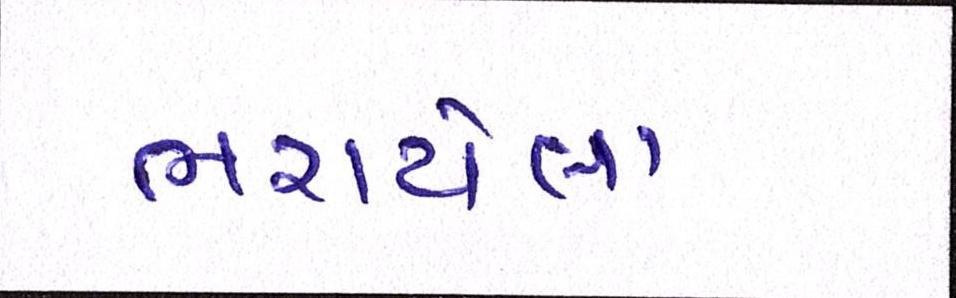 ભરાયેલા